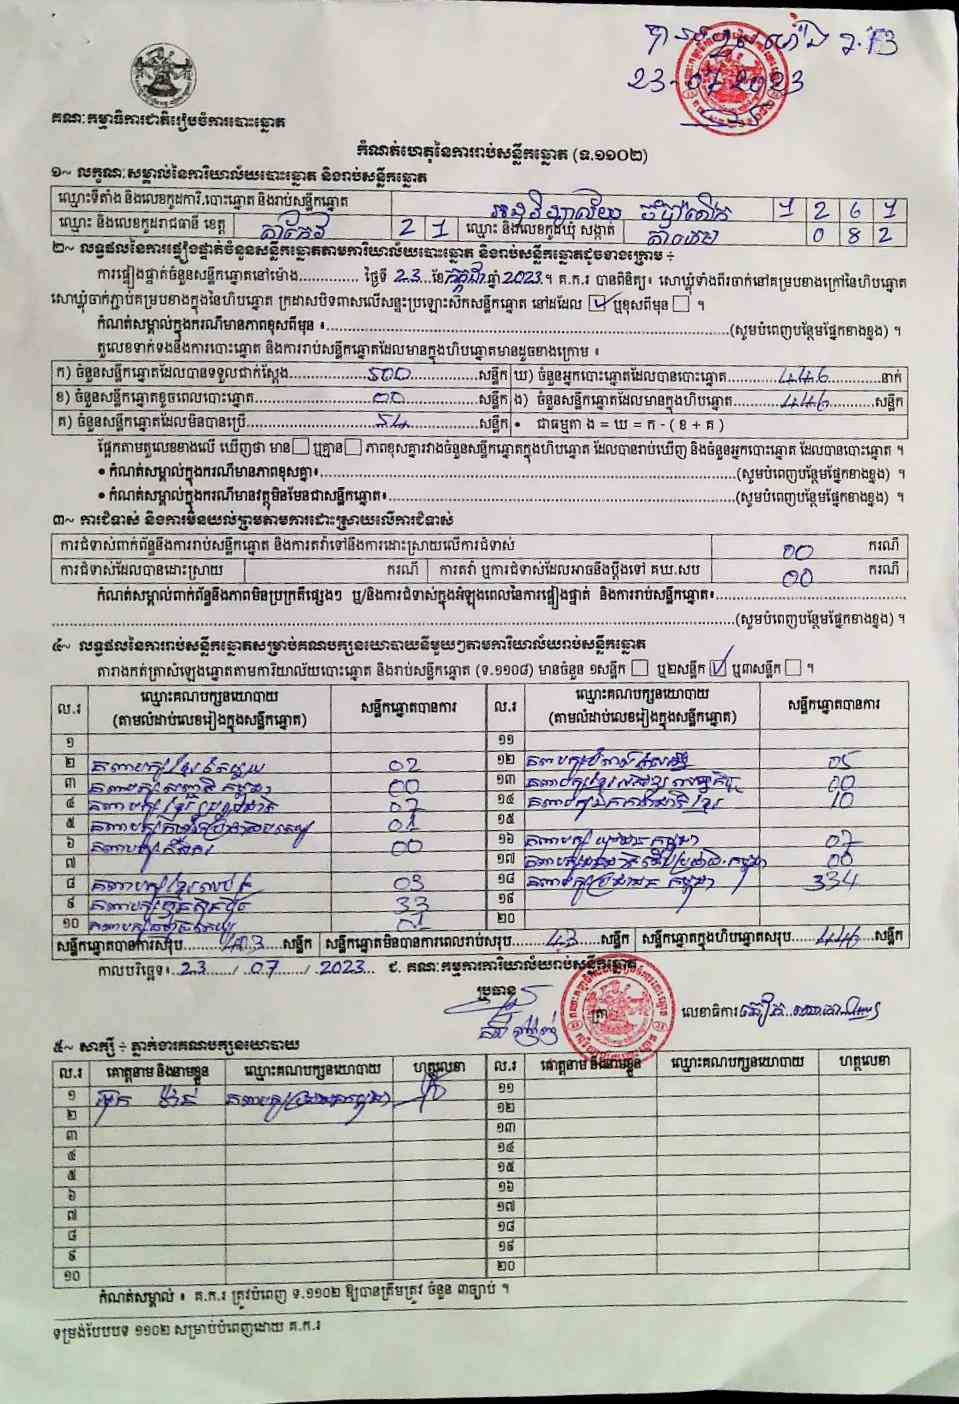 23-07-2023
គណៈកម្មាធិការជាតិរៀបចំការបោះឆ្នោត
កំណត់ហេតុនៃការរាប់សន្លឹកឆ្នោត (ទ.១១០២)
១~ លក្ខណៈសម្គាល់នៃការិយាល័យបោះឆ្នោត និងរាប់សន្លឹកឆ្នោត
ឈ្មោះទីតាំង និងលេខកូដការិ.បោះឆ្នោត និងរាប់សន្លឹកឆ្នោត 1 2 6 1
ឈ្មោះ និងលេខកូដរាជធានី ខេត្ត តាកែវ 2 1 ឈ្មោះ និងលេខកូដឃុំ សង្កាត់ 0 8 2
២~ លទ្ធផលនៃការផ្ទៀងផ្ទាត់ចំនួនសន្លឹកឆ្នោតតាមការិយាល័យបោះឆ្នោត និងរាប់សន្លឹកឆ្នោតដូចខាងក្រោម ÷
ការផ្ទៀងផ្ទាត់ចំនួនសន្លឹកឆ្នោតនៅម៉ោង............ ថ្ងៃទី 23 ខែ កក្កដា ឆ្នាំ 2023។ គ.ក.រ បានពិនិត្យ៖ សោឃ្លុំទាំងពីរចាក់នៅគម្របខាងក្រៅនៃហិបឆ្នោត
សោឃ្លុំចាក់ភ្ជាប់គម្របខាងក្នុងនៃហិបឆ្នោត ក្រដាសបិទពាសលើសន្ទះប្រឡោះស៊ីកសន្លឹកឆ្នោត នៅដដែល ☑ ឬខុសពីមុន ☐ ។
កំណត់សម្គាល់ក្នុងករណីមានភាពខុសពីមុន ៖............(សូមបំពេញបន្ថែមផ្នែកខាងខ្នង) ។
តួលេខទាក់ទងនឹងការបោះឆ្នោត និងការរាប់សន្លឹកឆ្នោតដែលមានក្នុងហិបឆ្នោតមានដូចខាងក្រោម ៖
ក) ចំនួនសន្លឹកឆ្នោតដែលបានទទួលជាក់ស្តែង 500 សន្លឹក ឃ) ចំនួនអ្នកបោះឆ្នោតដែលបានបោះឆ្នោត 446 នាក់
ខ) ចំនួនសន្លឹកឆ្នោតខូចពេលបោះឆ្នោត 00 សន្លឹក ង) ចំនួនសន្លឹកឆ្នោតដែលមានក្នុងហិបឆ្នោត 446 សន្លឹក
គ) ចំនួនសន្លឹកឆ្នោតដែលមិនបានប្រើ 54 សន្លឹក • ជាធម្មតា ង = ឃ = ក - ( ខ + គ )
ផ្អែកតាមតួលេខខាងលើ ឃើញថា មាន ☐ ឬគ្មាន ☐ ភាពខុសគ្នារវាងចំនួនសន្លឹកឆ្នោតក្នុងហិបឆ្នោត ដែលបានរាប់ឃើញ និងចំនួនអ្នកបោះឆ្នោត ដែលបានបោះឆ្នោត ។
• កំណត់សម្គាល់ក្នុងករណីមានភាពខុសគ្នា៖............(សូមបំពេញបន្ថែមផ្នែកខាងខ្នង) ។
• កំណត់សម្គាល់ក្នុងករណីមានវត្ថុមិនមែនជាសន្លឹកឆ្នោត៖............(សូមបំពេញបន្ថែមផ្នែកខាងខ្នង) ។
៣~ ការជំទាស់ និងការមិនយល់ព្រមតាមការដោះស្រាយលើការជំទាស់
ការជំទាស់ពាក់ព័ន្ធនឹងការរាប់សន្លឹកឆ្នោត និងការតវ៉ាទៅនឹងការដោះស្រាយលើការជំទាស់ 00 ករណី
ការជំទាស់ដែលបានដោះស្រាយ ករណី ការតវ៉ា ឬការជំទាស់ដែលអាចនឹងប្តឹងទៅ គឃ.សប 00 ករណី
កំណត់សម្គាល់ពាក់ព័ន្ធនឹងភាពមិនប្រក្រតីផ្សេងៗ ឬ/និងការជំទាស់ក្នុងអំឡុងពេលនៃការផ្ទៀងផ្ទាត់ និងការរាប់សន្លឹកឆ្នោត៖............
............(សូមបំពេញបន្ថែមផ្នែកខាងខ្នង) ។
៤~ លទ្ធផលនៃការរាប់សន្លឹកឆ្នោតសម្រាប់គណបក្សនយោបាយនីមួយៗតាមការិយាល័យរាប់សន្លឹកឆ្នោត
តារាងកត់ត្រាសំឡេងឆ្នោតតាមការិយាល័យបោះឆ្នោត និងរាប់សន្លឹកឆ្នោត (ទ.១១០៨) មានចំនួន ១សន្លឹក ☐ ឬ២សន្លឹក ☑ ឬ៣សន្លឹក ☐ ។
ល.រ ឈ្មោះគណបក្សនយោបាយ (តាមលំដាប់លេខរៀងក្នុងសន្លឹកឆ្នោត) សន្លឹកឆ្នោតបានការ ល.រ ឈ្មោះគណបក្សនយោបាយ (តាមលំដាប់លេខរៀងក្នុងសន្លឹកឆ្នោត) សន្លឹកឆ្នោតបានការ
១ ១១
២ 02 ១២ 05
៣ 00 ១៣ 00
៤ 07 ១៤ 10
៥ 01 ១៥
៦ 00 ១៦ 07
៧ ១៧ 00
៨ គណបក្ស 03 ១៨ គណបក្សប្រជាជនកម្ពុជា 334
៩ 33 ១៩
១០ 01 ២០
សន្លឹកឆ្នោតបានការសរុប 403 សន្លឹក សន្លឹកឆ្នោតមិនបានការពេលរាប់សរុប 43 សន្លឹក សន្លឹកឆ្នោតក្នុងហិបឆ្នោតសរុប 446 សន្លឹក
កាលបរិច្ឆេទ៖ 23 / 07 / 2023 ជ. គណៈកម្មការការិយាល័យរាប់សន្លឹកឆ្នោត
ប្រធាន
ត្រា លេខាធិការ
៥~ សាក្សី ÷ ភ្នាក់ងារគណបក្សនយោបាយ
ល.រ គោត្តនាម និងនាមខ្លួន ឈ្មោះគណបក្សនយោបាយ ហត្ថលេខា ល.រ គោត្តនាម និងនាមខ្លួន ឈ្មោះគណបក្សនយោបាយ ហត្ថលេខា
១ គណបក្សប្រជាជនកម្ពុជា ១១
២ ១២
៣ ១៣
៤ ១៤
៥ ១៥
៦ ១៦
៧ ១៧
៨ ១៨
៩ ១៩
១០ ២០
កំណត់សម្គាល់ ៖ គ.ក.រ ត្រូវបំពេញ ទ.១១០២ ឱ្យបានត្រឹមត្រូវ ចំនួន ៣ច្បាប់ ។
ទម្រង់បែបបទ ១១០២ សម្រាប់បំពេញដោយ គ.ក.រ